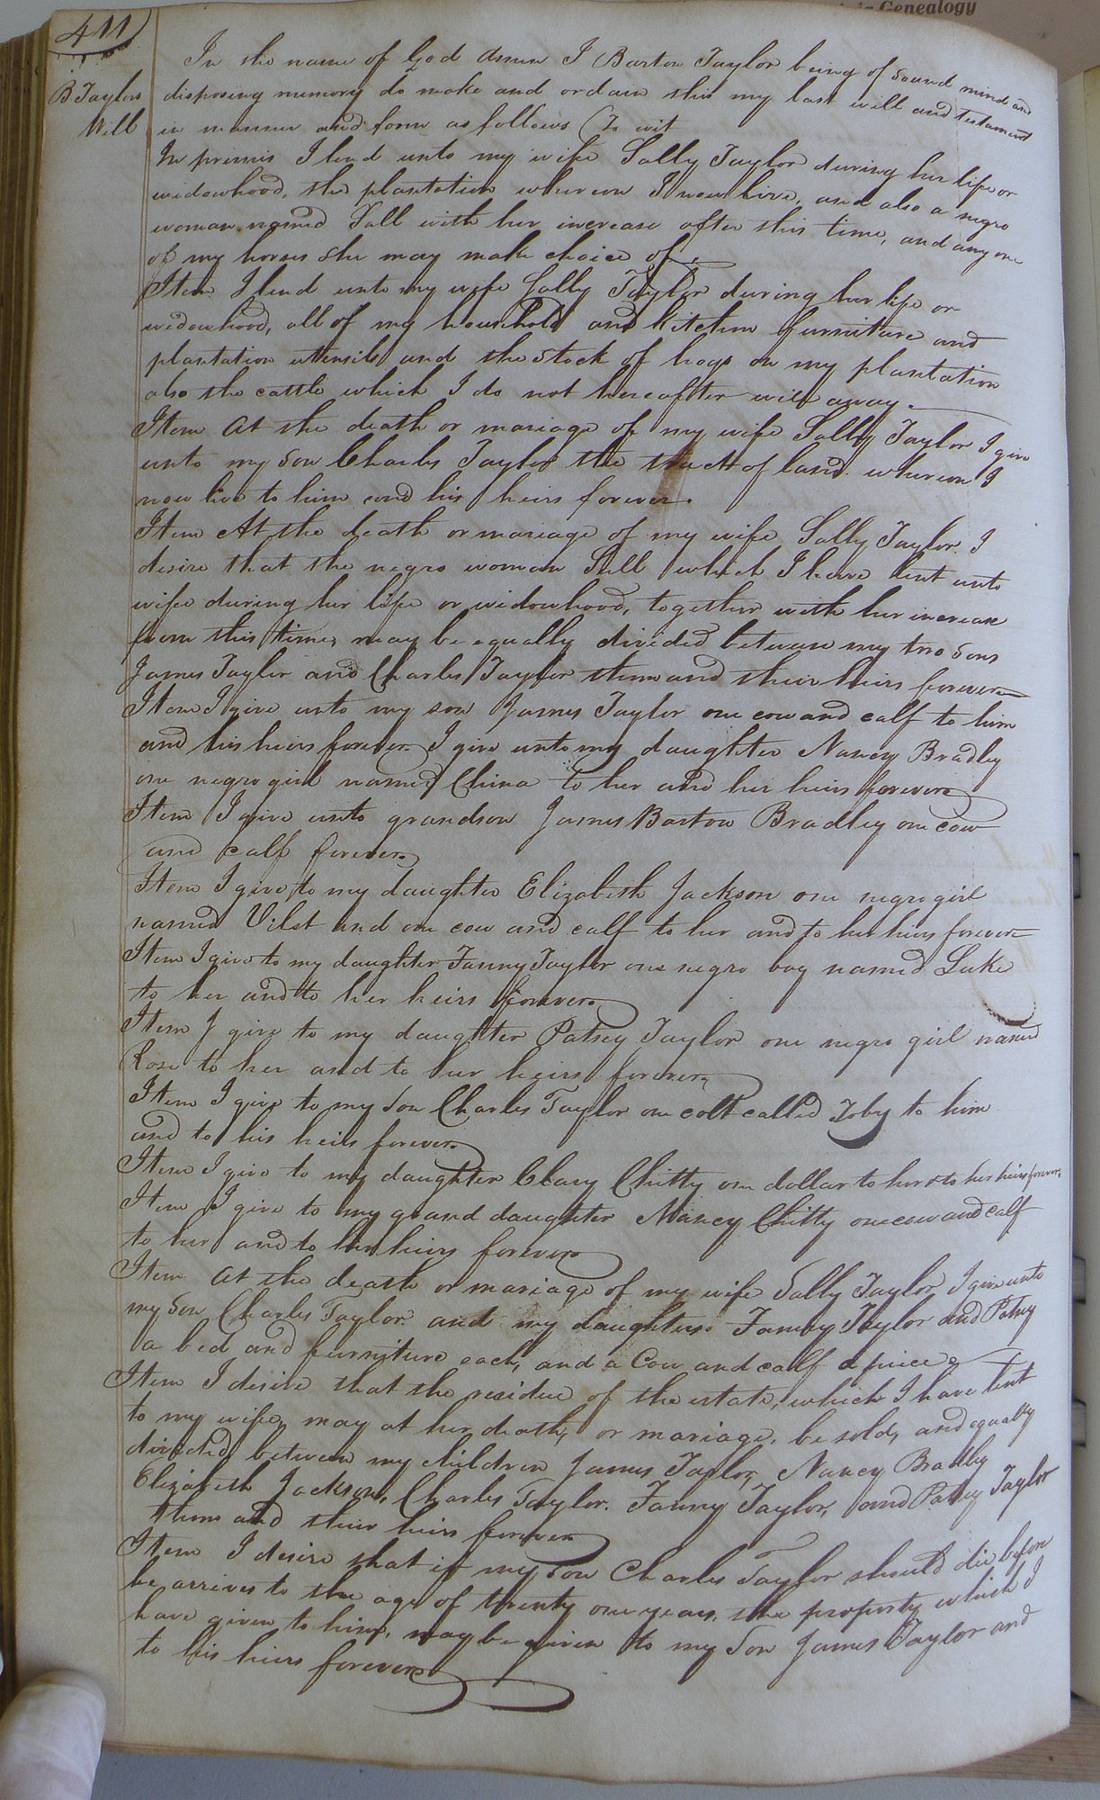 - Genealogy
411
B Taylors
Will
In the name of God Amen I Barton Taylor being of sound mind and
disposing memory do make and ordain this my last will and testament
in manner and form as follows (To wit
In premis I lend unto my wife Sally Taylor during her life or
widowhood, the plantation whereon I now live, and also a negro
woman named Sall with her increase after this time, and any one
of my horses she may make choice of.
Item I lend unto my wife Sally Taylor during her life or
widowhood, all of my household and kitchen furniture and
plantation utensils and the stock of hogs on my plantation
also the cattle which I do not hereafter will away.
Item At the death or mariage of my wife Sally Taylor I give
unto my son Charles Taylor the track of land whereon I
now live to him and his heirs forever.
Item At the death or mariage of my wife Sally Taylor I
desire that the negro woman Sall which I have lent unto
wife during her life or widowhood, together with her increase
from this time, may be equally divided between my two sons
James Taylor and Charles Taylor them and their heirs forever
Item I give unto my son James Taylor one cow and calf to him
and his heirs forever I give unto my daughter Nancy Bradley
one negro girl named China to her and her heirs forever
Item I give unto grandson James Barton Bradley one cow
and calf forever
Item I give to my daughter Elizabeth Jackson one negro girl
named Vilet and one cow and calf to her and to her heirs forever
Item I give to my daughter Fanny Taylor one negro boy named Luke
to her and to her heirs forever
Item I give to my daughter Patsey Taylor one negro girl named
Rose to her and to her heirs forever
Item I give to my son Charles Taylor one colt called Toby to him
and to his heirs forever
Item I give to my daughter Clary Chitty one dollar to her & to her heirs forever
Item I give to my grand daughter Nancy Chitty one cow and calf
to her and to her heirs forever
Item At the death or mariage of my wife Sally Taylor, I give unto
my son Charles Taylor and my daughters Fanny Taylor and Patsey
a bed and furniture each, and a Cow and calf apiece
Item I desire that the residue of the estate, which I have lent
to my wife, may at her death, or mariage, be sold, and equally
divided between my children James Taylor, Nancy Bradley
Elizabeth Jackson, Charles Taylor. Fanny Taylor, and Patsey Taylor
them and their heirs forever
Item I desire that if my son Charles Taylor should die before
he arrives to the age of twenty one years, the property which I
have given to him, may be given to my son James Taylor and
to his heirs forever